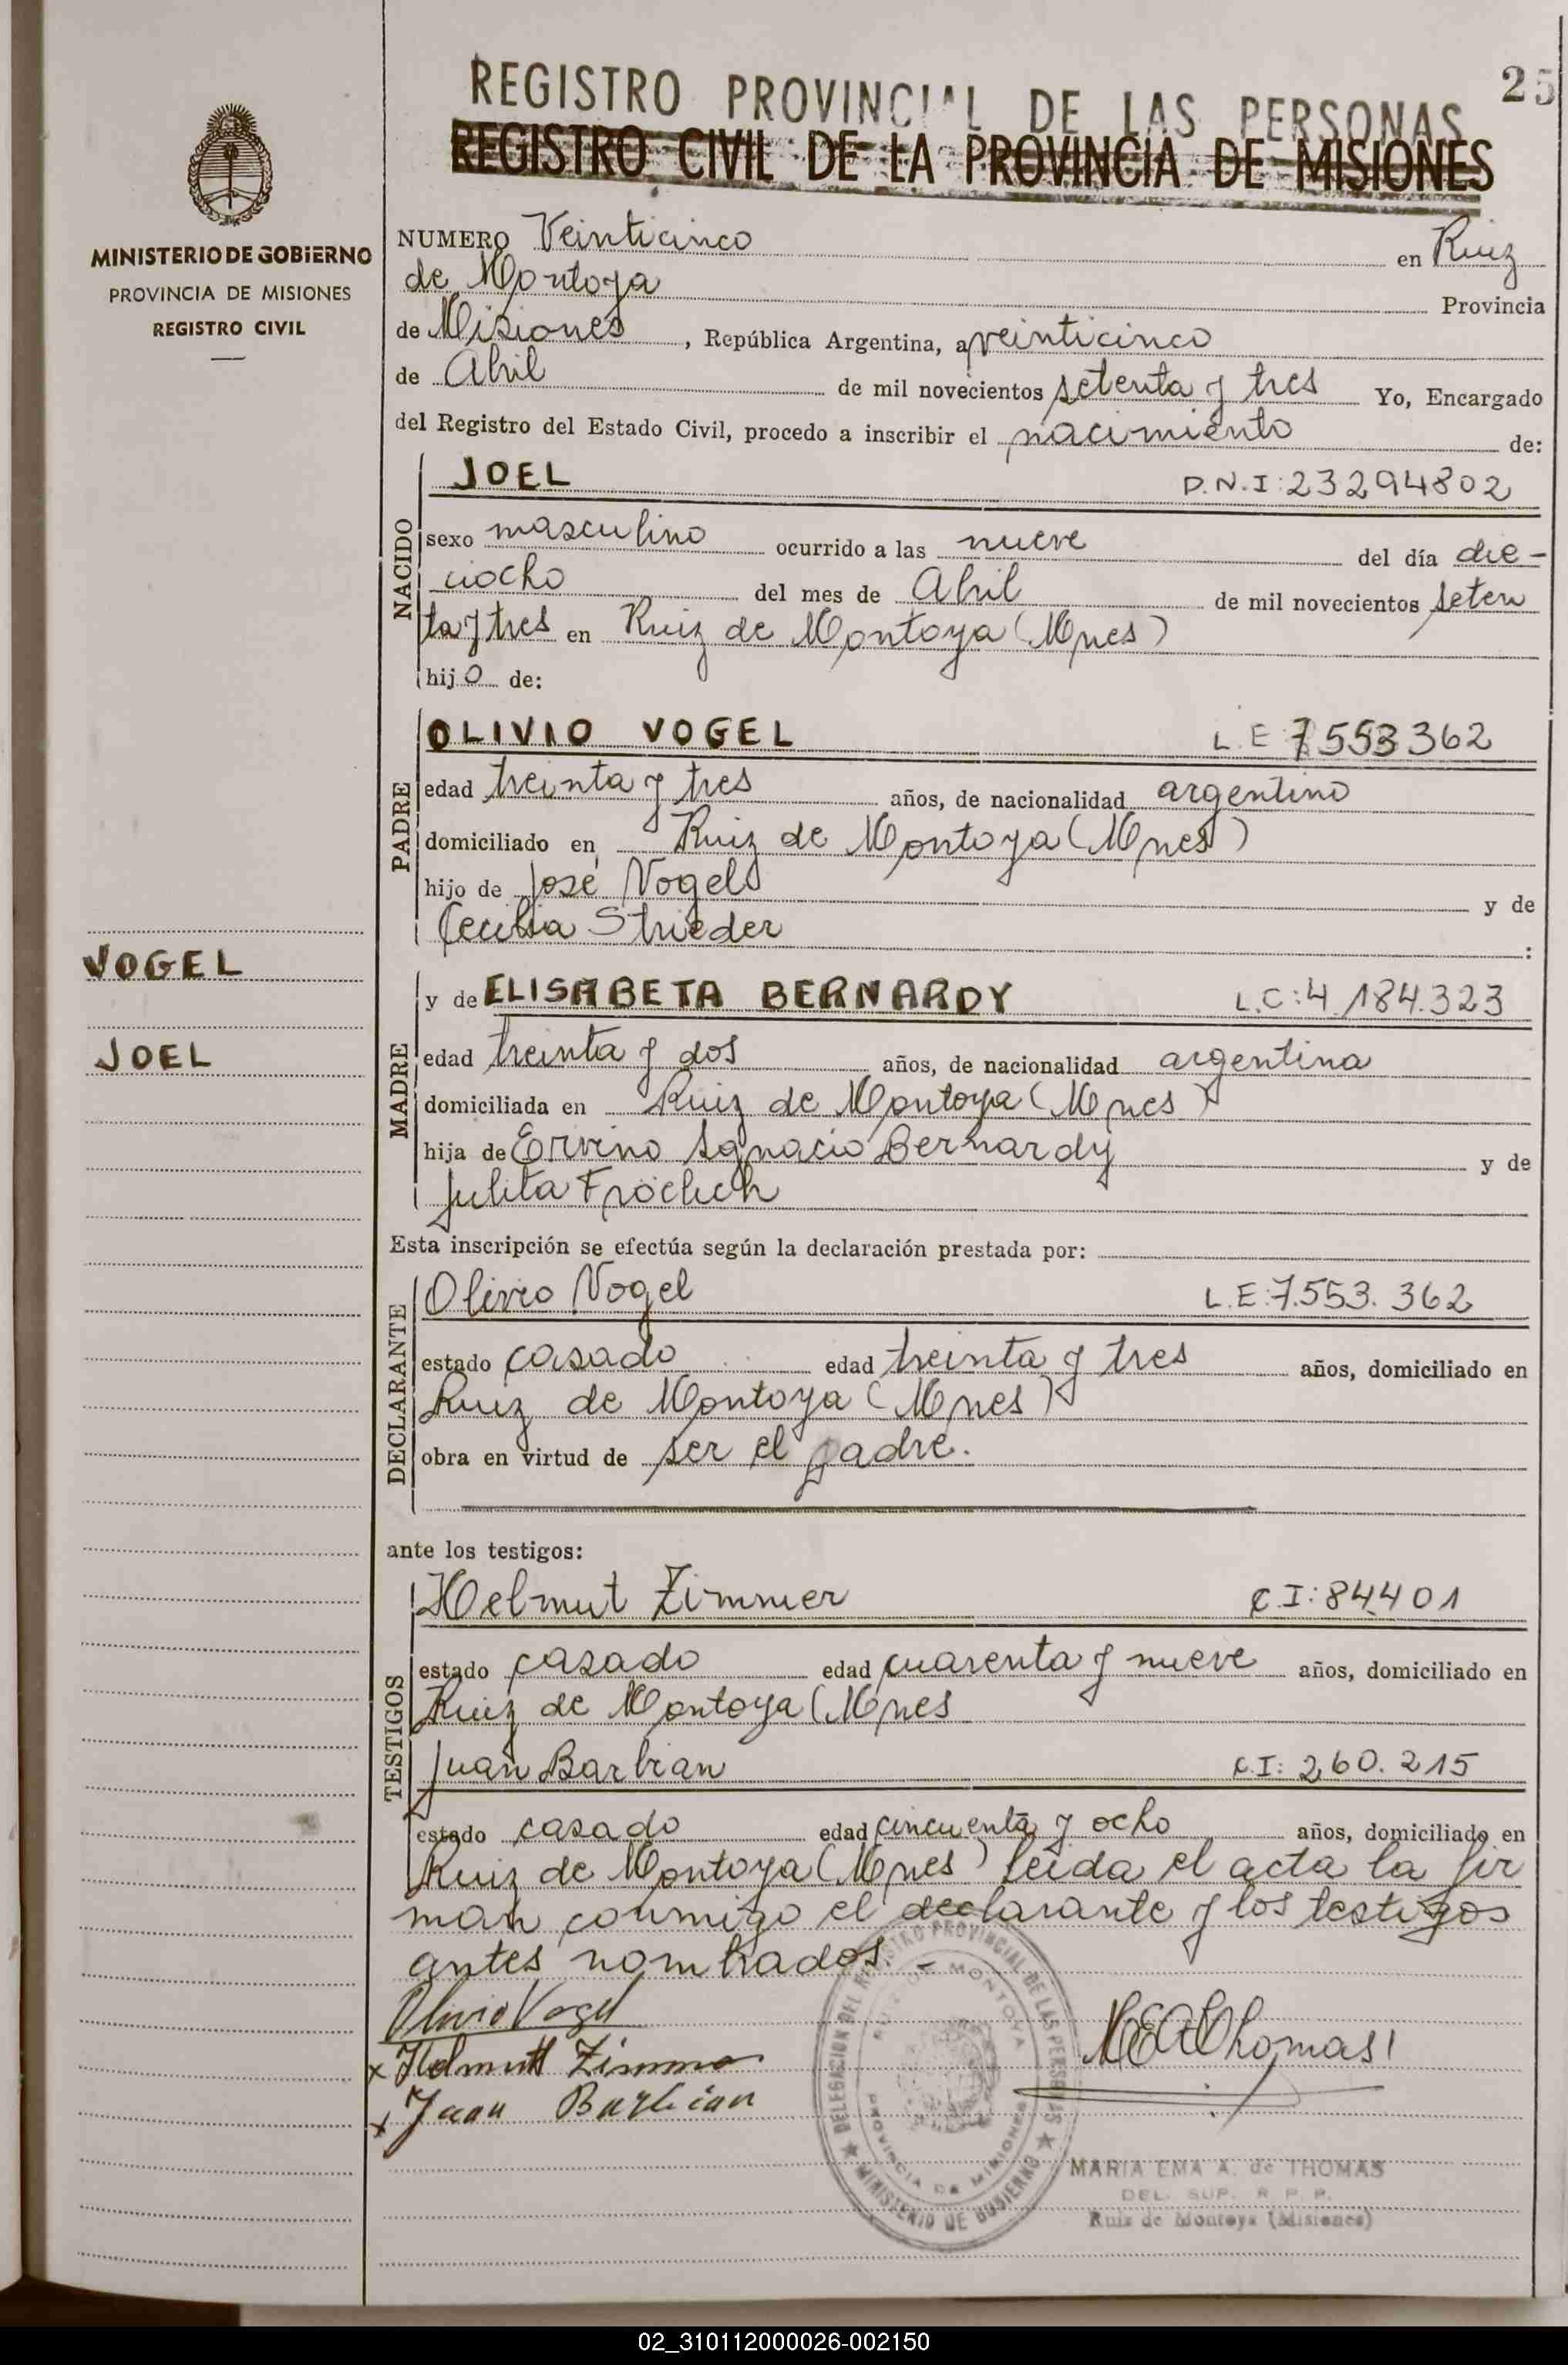 REGISTRO PROVINCIAL DE LAS PERSONAS
25
REGISTRO CIVIL DE LA PROVINCIA DE MISIONES
MINISTERIO DE GOBIERNO
PROVINCIA DE MISIONES
REGISTRO CIVIL
VOGEL
JOEL
NUMERO Veinticinco en Ruiz
de Montoya Provincia
de Misiones, República Argentina, a veinticinco
de Abril de mil novecientos setenta y tres Yo, Encargado
del Registro del Estado Civil, procedo a inscribir el nacimiento de:
NACIDO
JOEL D.N.I: 23294802
sexo masculino ocurrido a las nueve del día die-
ciocho del mes de Abril de mil novecientos seten
ta y tres en Ruiz de Montoya (Mnes)
hijo de:
PADRE
OLIVIO VOGEL L.E 7553362
edad treinta y tres años, de nacionalidad argentino
domiciliado en Ruiz de Montoya (Mnes)
hijo de José Vogel y de
Cecilia Strieder :
MADRE
y de ELISABETA BERNARDY L.C: 4.184.323
edad treinta y dos años, de nacionalidad argentina
domiciliada en Ruiz de Montoya (Mnes)
hija de Ervino Ignacio Bernardy y de
Julita Fröelich
Esta inscripción se efectúa según la declaración prestada por:
DECLARANTE
Olivio Vogel L.E: 7.553.362
estado casado edad treinta y tres años, domiciliado en
Ruiz de Montoya (Mnes)
obra en virtud de ser el padre.
ante los testigos:
TESTIGOS
Helmut Zimmer C.I: 84401
estado casado edad cuarenta y nueve años, domiciliado en
Ruiz de Montoya (Mnes
Juan Barbian C.I: 260.215
estado casado edad cincuenta y ocho años, domiciliado en
Ruiz de Montoya (Mnes) leida el acta la fir
man conmigo el declarante y los testigos
antes nombrados. -
Olivio Vogel
x Helmuth Zimmer
x Juan Barbian
MEAThomas
DELEGACION DEL REGISTRO PROVINCIAL DE LAS PERSONAS
RUIZ DE MONTOYA
PROVINCIA DE MISIONES
★ MINISTERIO DE GOBIERNO ★
MARIA EMA A. de THOMAS
DEL. SUP. R. P. P.
Ruiz de Montoya (Misiones)
02_310112000026-002150